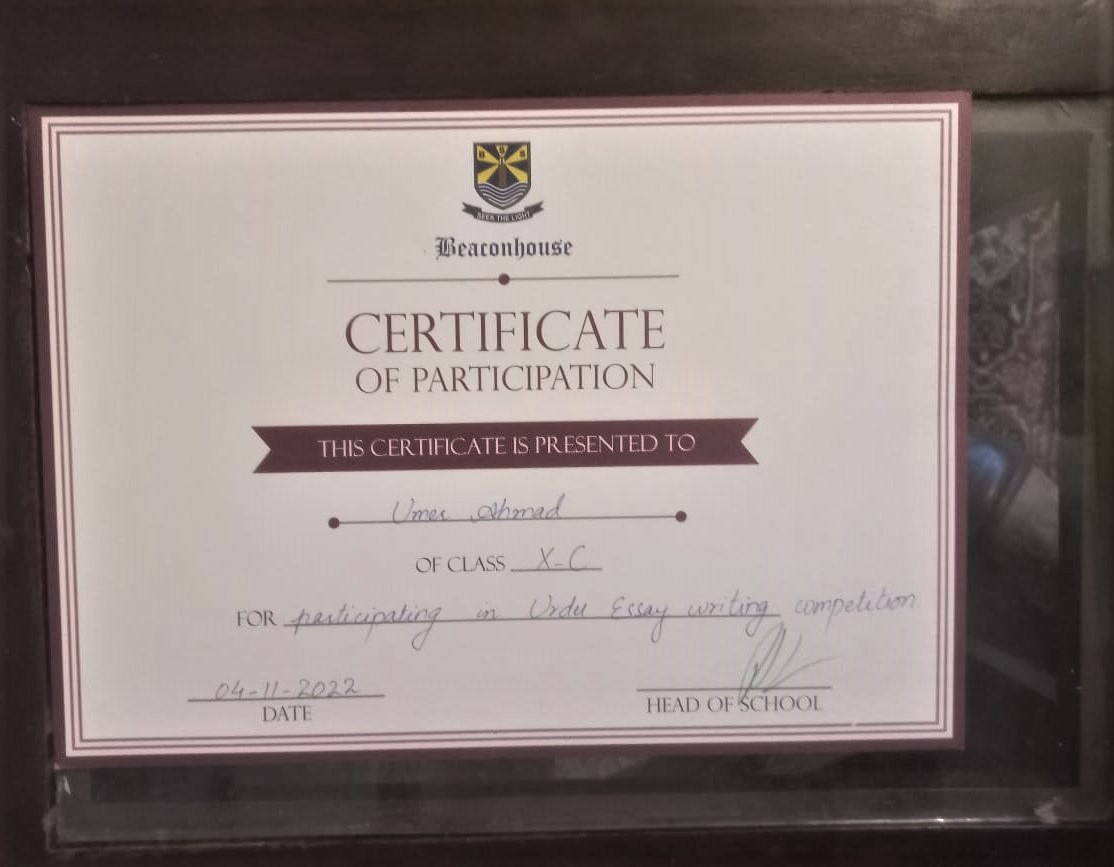 B S S
SEEK THE LIGHT
Beaconhouse
CERTIFICATE
OF PARTICIPATION
THIS CERTIFICATE IS PRESENTED TO
Umer Ahmad
OF CLASS X-C
FOR participating in Urdu Essay writing competition
04-11-2022
DATE
HEAD OF SCHOOL